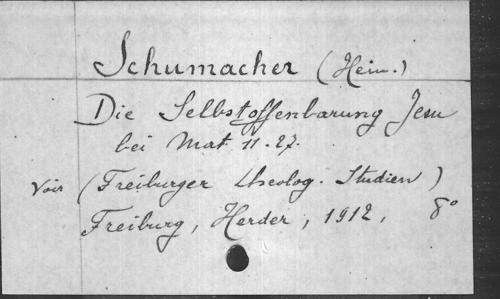 Schumacher (Hein.)
Die Selbstoffenbarung Jesu
bei Mat. 11.27.
Voir (Freiburger theolog. Studien)
Freiburg, Herder, 1912, 8°